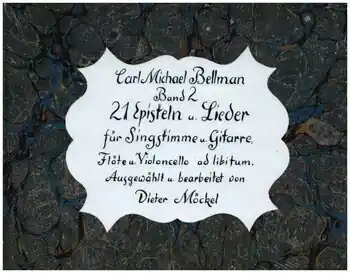 Carl Michael Bellman
Band 2
21 Episteln u. Lieder
für Singstimme u. Gitarre,
Flöte u. Violoncello ad libitum.
Ausgewählt u. bearbeitet von
Dieter Möckel